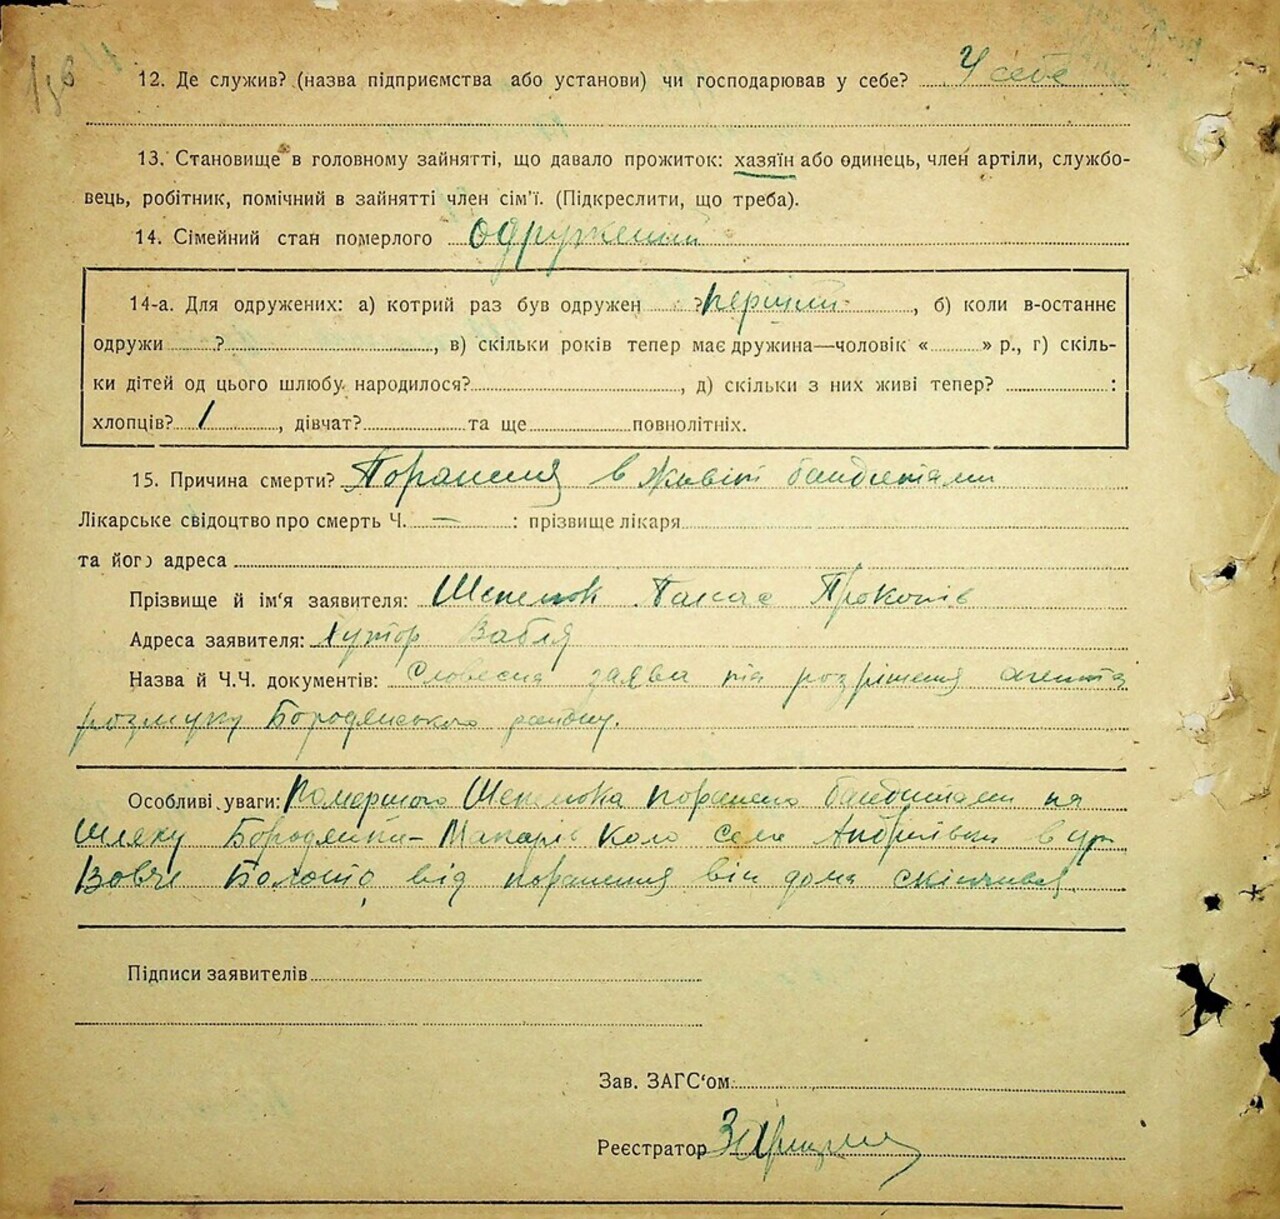 12. Де служив? (назва підприємства або установи) чи господарював у себе? У себе
13. Становище в головному зайнятті, що давало прожиток: хазяїн або одинець, член артіли, службо-
вець, робітник, помічний в зайнятті член сім'ї. (Підкреслити, що треба).
14. Сімейний стан померлого одружений
14-а. Для одружених: а) котрий раз був одружен ? перший, б) коли в-останнє
одружи ?, в) скільки років тепер має дружина—чоловік « » р., г) скіль-
ки дітей од цього шлюбу народилося?, д) скільки з них живі тепер? :
хлопців? 1, дівчат? та ще повнолітніх.
15. Причина смерти? Поранення в живіт бандитами
Лікарське свідоцтво про смерть Ч. — : прізвище лікаря
та його адреса
Прізвище й ім'я заявителя: Шепелюк Панас Прокопів
Адреса заявителя: Хутор Вабля
Назва й Ч.Ч. документів: Словесна заява та розрішення агента
розшуку Бородянського району.
Особливі уваги: Помершого Шепелюка поранено бандитами на
шляху Бородянка-Макарів коло села Андріївки в ур.
Вовче Болото, від поранення він дома скінчився.
Підписи заявителів
Зав. ЗАГС'ом
Реєстратор